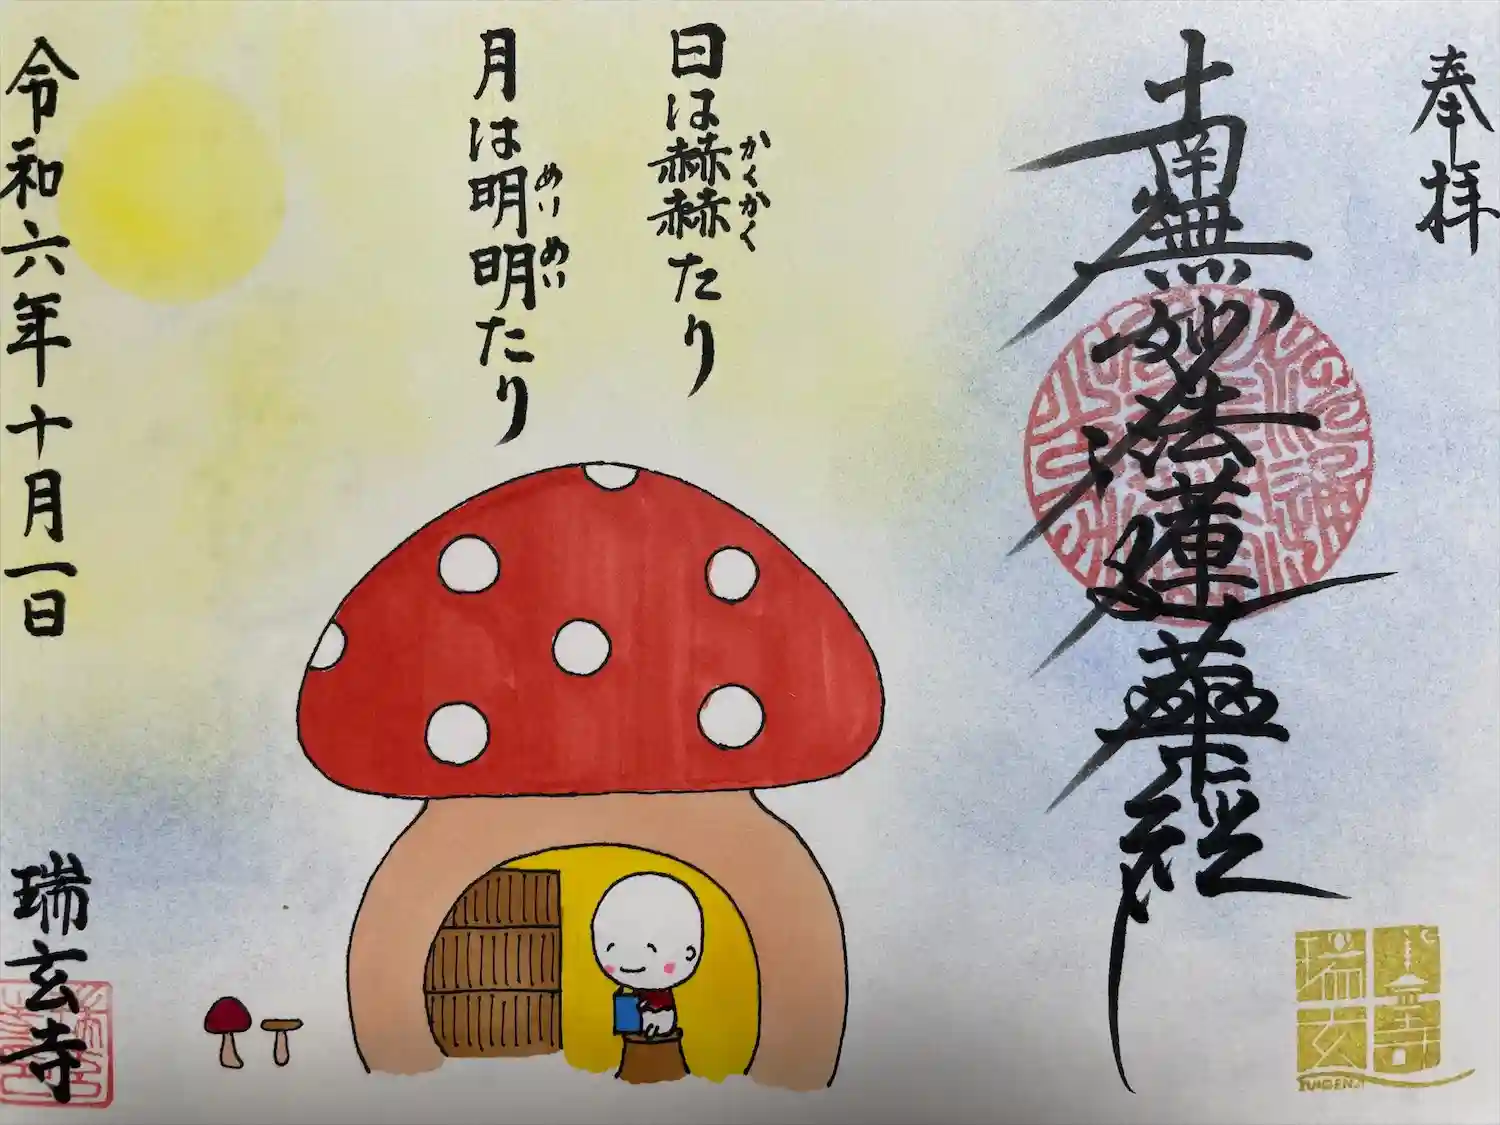 奉拝
南無妙法蓮華経
日は赫赫たり
かくかく
月は明明たり
めいめい
令和六年十月一日
瑞玄寺
瑞玄寺
ZUIGENJI